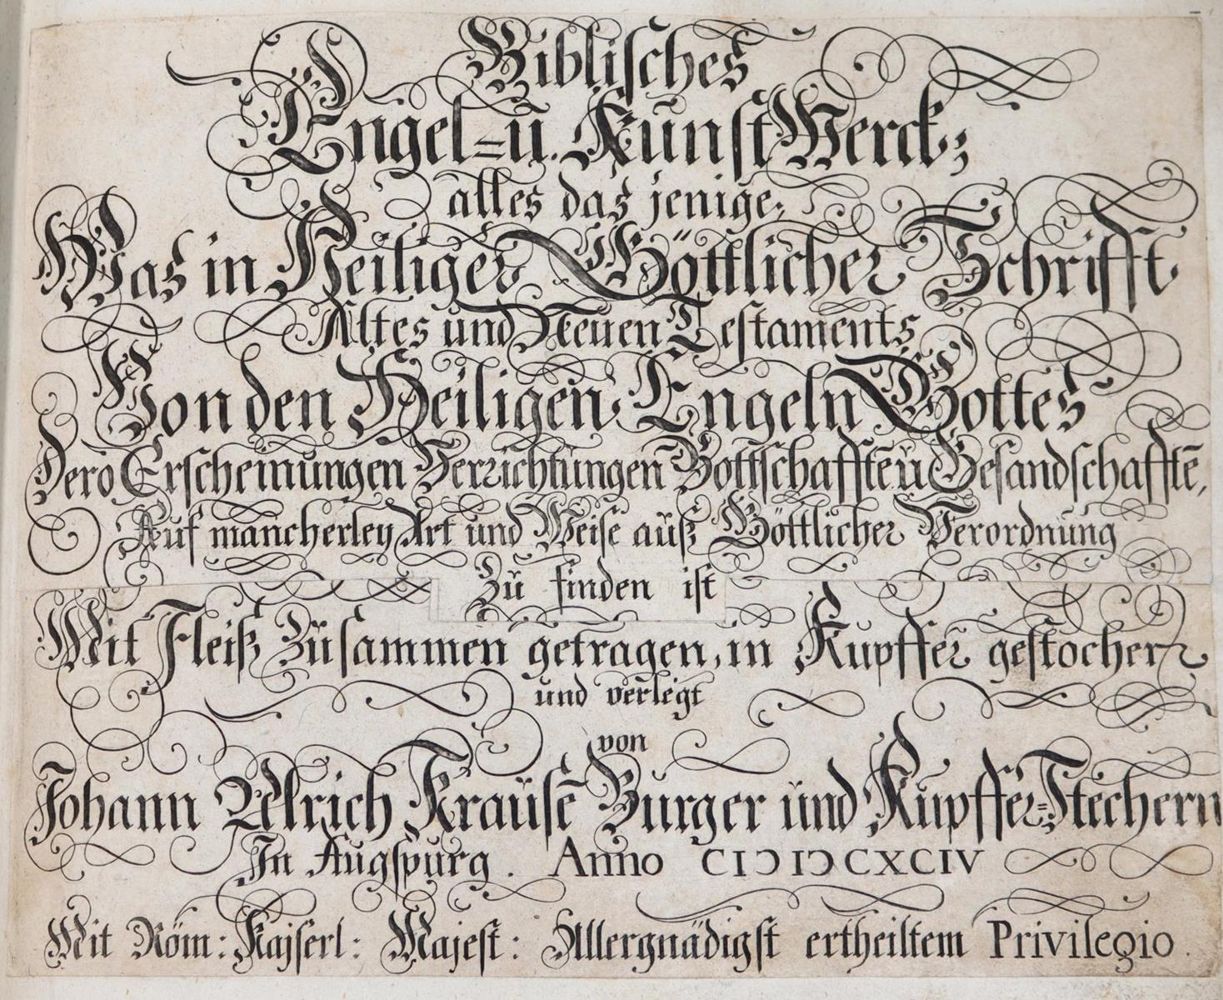 Biblisches
Engel= ū. Kŭnst Werck;
alles das jenige;
Was in Heiliger Göttlicher Schrifft
Altes und Neuen Testaments
Von den Heiligen Engeln Gottes
Dero Erscheinŭngen Verrichtŭngen Bottschafftē ū Gesandschafftē,
Auf mancherley Art und Weise aŭß Göttlicher Verordnŭng
Zŭ finden ist
Mit Fleiß Zŭsammen getragen, in Kupffer gestochen
und verlegt
von
Johann Ulrich Kraŭsē Burger ŭnd Kupffer=Stechern
In Augspŭrg. Anno CIↃ IↃ CXCIV
Mit Röm: Kajserl: Majest: Allergnädigst ertheiltem Privilegio.